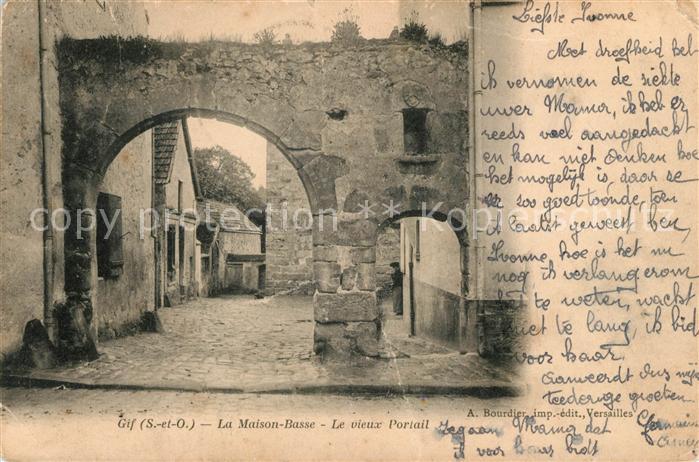 Liefste Ivonne
Met droefheid heb
ik vernomen de ziekte
uwer Mama, ik heb er
reeds veel aangedacht
en kan niet denken hoe
het mogelijk is, daar se
er zoo goed toonde, toen
ik laatst geweest ben,
Ivonne hoe is het nu
nog, ik verlang erom
te weten, wacht
niet te lang, ik bid
voor haar
Aanveerdt dus mijn
teederige groeten
Germaine
Zegaan Mama dat
ik voor haar bidt
Gif (S.-et-O.) — La Maison-Basse - Le vieux Portail
A. Bourdier, imp.-édit., Versailles
copyright by ** Kpferschell